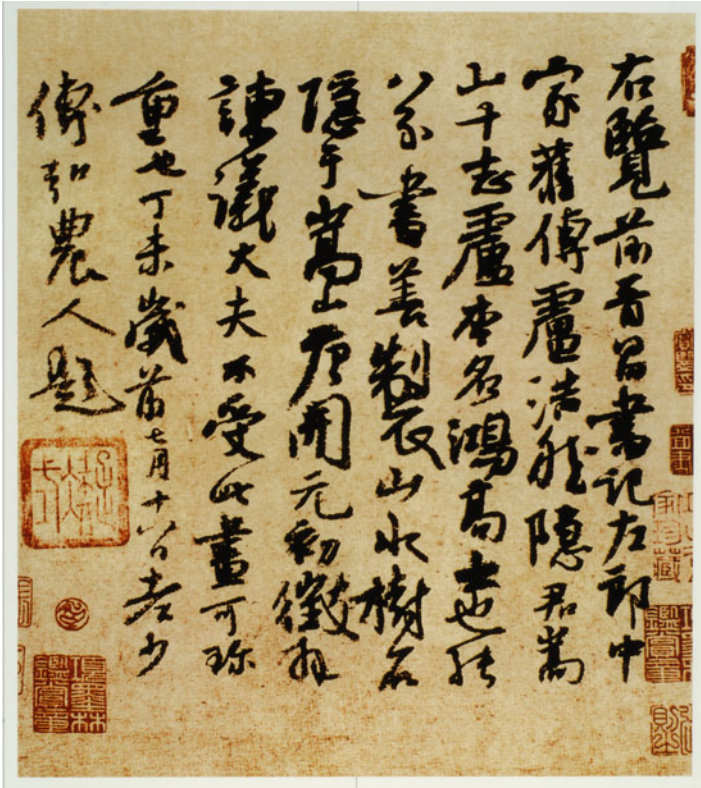 右覽前晉昌書記左郎中
家舊傳盧浩然隱君嵩
山十志盧本名鴻高士也能
八分書善製山水樹石
隱于嵩山唐開元初徵拜
諫議大夫不受此畫可珍
重也丁未歲前七月十八日老少
傅弘農人題
項墨林鑑賞章